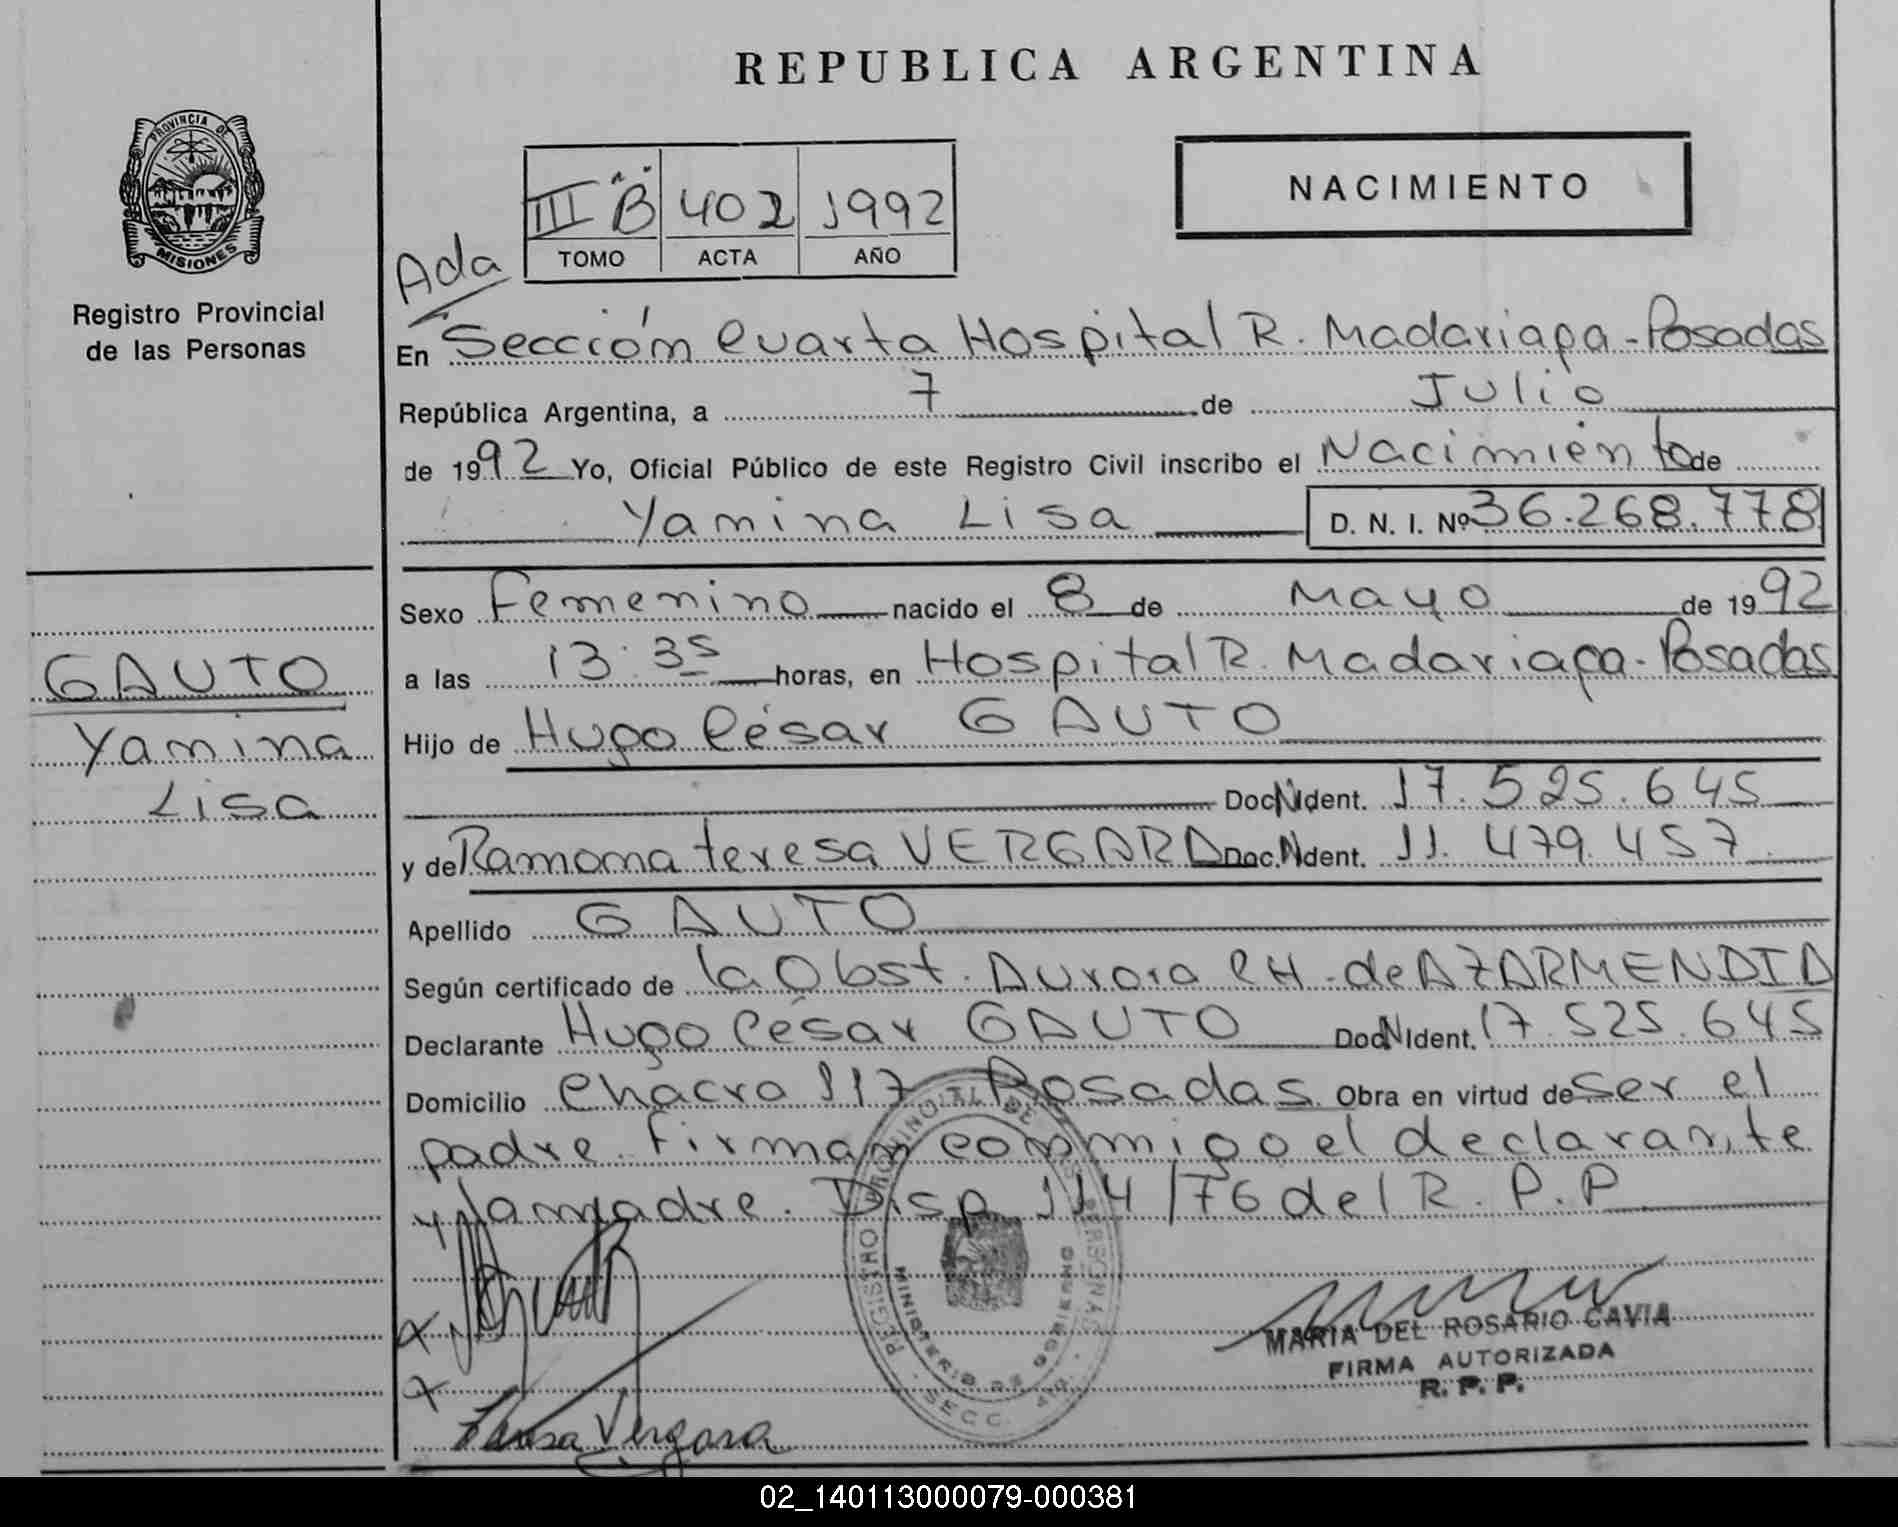 REPUBLICA ARGENTINA
PROVINCIA DE
MISIONES
Registro Provincial
de las Personas
III "B" 402 1992
TOMO ACTA AÑO
NACIMIENTO
Ada
En Sección Cuarta Hospital R. Madariaga - Posadas
República Argentina, a 7 de Julio
de 1992 Yo, Oficial Público de este Registro Civil inscribo el Nacimiento de
Yamina Lisa D. N. I. Nº 36.268.778
Sexo Femenino nacido el 8 de Mayo de 1992
a las 13:35 horas, en Hospital R. Madariaga - Posadas
Hijo de Hugo César GAUTO
Doc. N Ident. 17.525.645
y de Ramona teresa VERGARA Doc. N Ident. 11.479.457
Apellido GAUTO
Según certificado de la Obst. Aurora CH. de AZARMENDIA
Declarante Hugo César GAUTO Doc N Ident. 17.525.645
Domicilio Chacra 117 Posadas Obra en virtud de ser el
padre. Firman conmigo el declarante
y la madre. Disp 114/76 del R.P.P
GAUTO
Yamina
Lisa
REGISTRO PROVINCIAL DE LAS PERSONAS
MINISTERIO DE GOBIERNO
SECC. 4ta.
MARIA DEL ROSARIO CAVIA
FIRMA AUTORIZADA
R. P. P.
x
x
Teresa Vergara
02_140113000079-000381